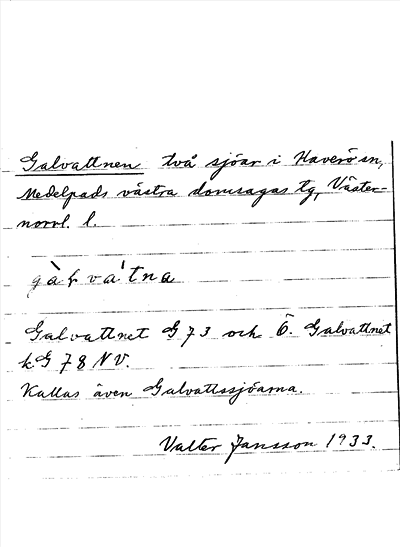 Galvattnen två sjöar i Haverö sn,
Medelpads västra domsagas tg, Väster-
norrl. l.
gà̀ɫvátna
Galvattnet G 73 och Ö. Galvattnet
k. G 78 NV.
Kallas även Galvattssjöarna.
Valter Jansson 1933.